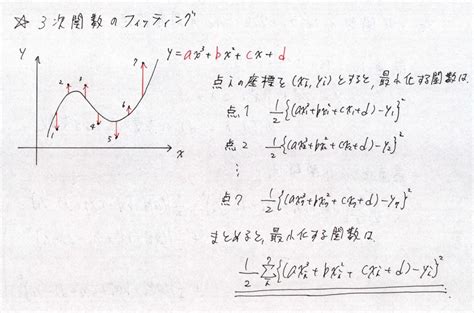 ☆ 3次関数のフィッティング
y
y=ax³+bx²+cx+d
1 2 3 4 5 6 7
x
点iの座標を(xi, yi)とすると,最小化する関数は
点1 1/2{(ax₁³+bx₁²+cx₁+d)-y₁}²
点2 1/2{(ax₂³+bx₂²+cx₂+d)-y₂}²
⋮
点7 1/2{(ax₇³+bx₇²+cx₇+d)-y₇}²
まとめると,最小化する関数は
1/2 Σ 7 i {(axi³+bxi²+cxi+d)-yi}²